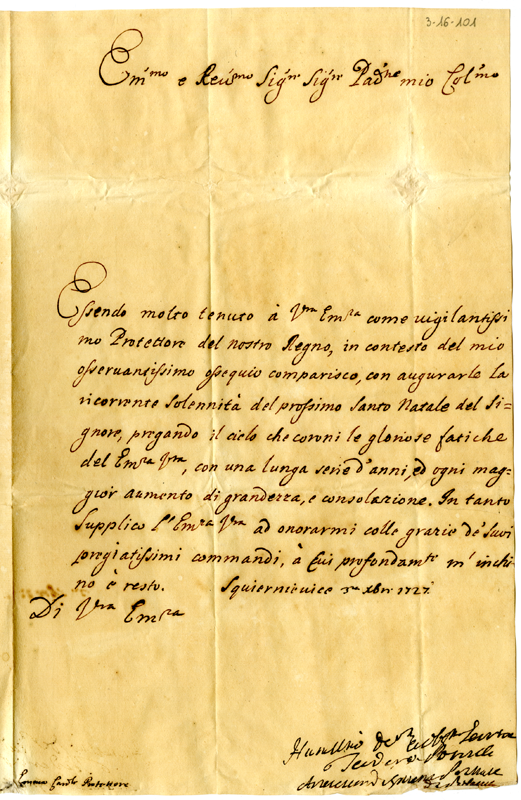 3-16-101
Em.mo e Reu.mo Sig.re Sig.re Pad.ne mio Col.mo
Essendo molto tenuto à V.ra Em.za come uigilantissi
mo Protettore del nostro Regno, in contesto del mio
osseruantissimo ossequio comparisco, con augurarle la
ricorrente solennità del prossimo Santo Natale del Si=
gnore, pregando il cielo che coroni le gloriose fatiche
del Em.za V.ra, con una lunga serie d'anni, ed ogni mag=
gior aumento di grandezza, e consolazione. In tanto
supplico l'Em.za V.ra ad onorarmi colle grazie de' suoi
pregiatissimi commandi, à cui profondam.te m' inchi
no è resto. Squiernieuice Xbr. 1727.
Di V.ra Em.za
Protettore